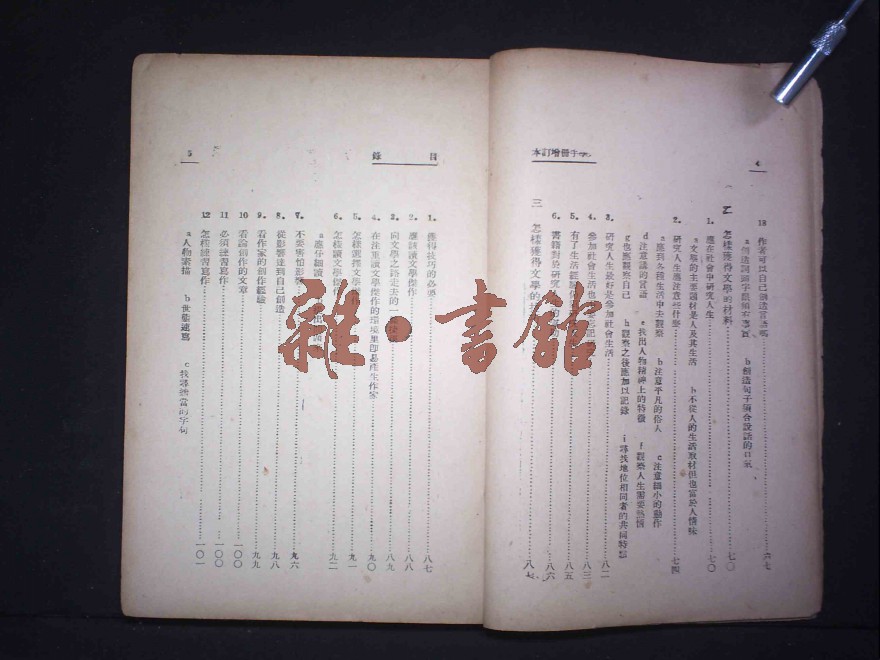 4
增訂本
13 作者可以自己創造言語嗎……六七
a 創造詞頭字眼須有專實 b 創造句子須合說話的口氣
二 怎樣獲得文學的材料……七〇
1. 應在社會中研究人生……七〇
a 文學的主要題材是人及其生活 b 不從人的生活取材但也富於人情味
2. 研究人生應注意些什麼……七四
a 應到各種生活中去觀察 b 注意平凡的俗人 c 注意細小的動作
d 注意談的言語 e 找出人物精神上的特徵 f 觀察人生需要熱情
g 也應觀察自己 h 觀察之後應加以記錄 i 尋找地位相同者的共同特點
3. 研究人生最好是參加社會生活……八二
4. 參加社會生活也……八三
5. 有了生活經驗……八五
6. 書籍對於研究人生的……八六
三 怎樣獲得文學的……八七
目錄
5
1. 獲得技巧的必要……八七
2. 應該讀文學傑作……八八
3. 向文學之路走去的一……八九
4. 在注重讀文學傑作的環境里即易產生作家……九〇
5. 怎樣選擇文學傑作……九一
6. 怎樣讀文學傑作……九二
a 應仔細讀
7. 不要害怕影響……九六
8. 從影響達到自己創造……九八
9. 看作家的創作經驗……九九
10 看論創作的文章……一〇〇
11 必須練習寫作……一〇〇
12 怎樣練習寫作……一〇一
a 人物素描 b 世態速寫 c 找尋適當的字句
雜·書館